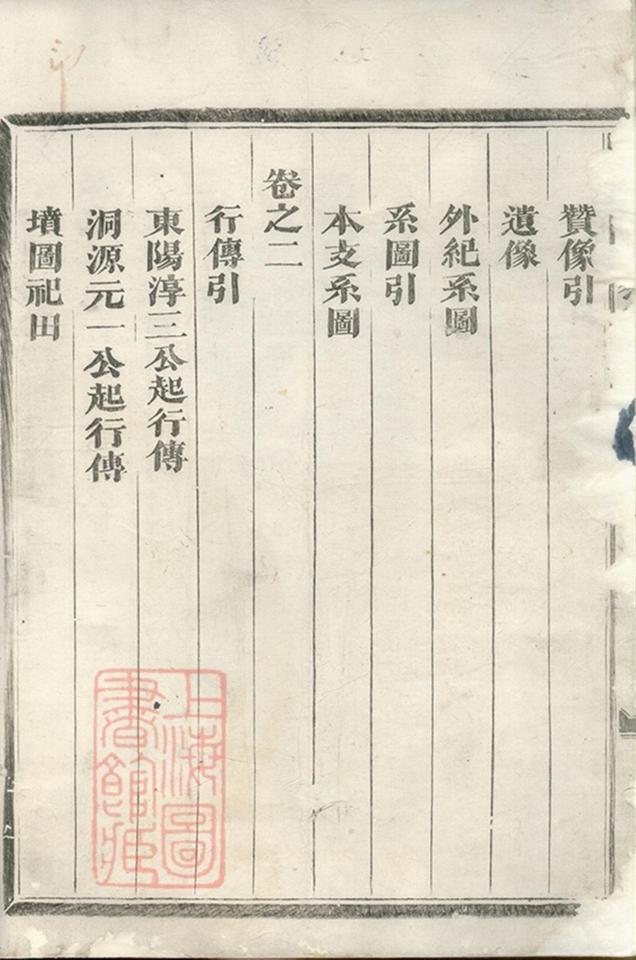 贊像引
遺像
外紀系圖
系圖引
本支系圖
卷之二
行傳引
東陽淳三公起行傳
洞源元一公起行傳
墳圖祀田
上海圖
書館藏